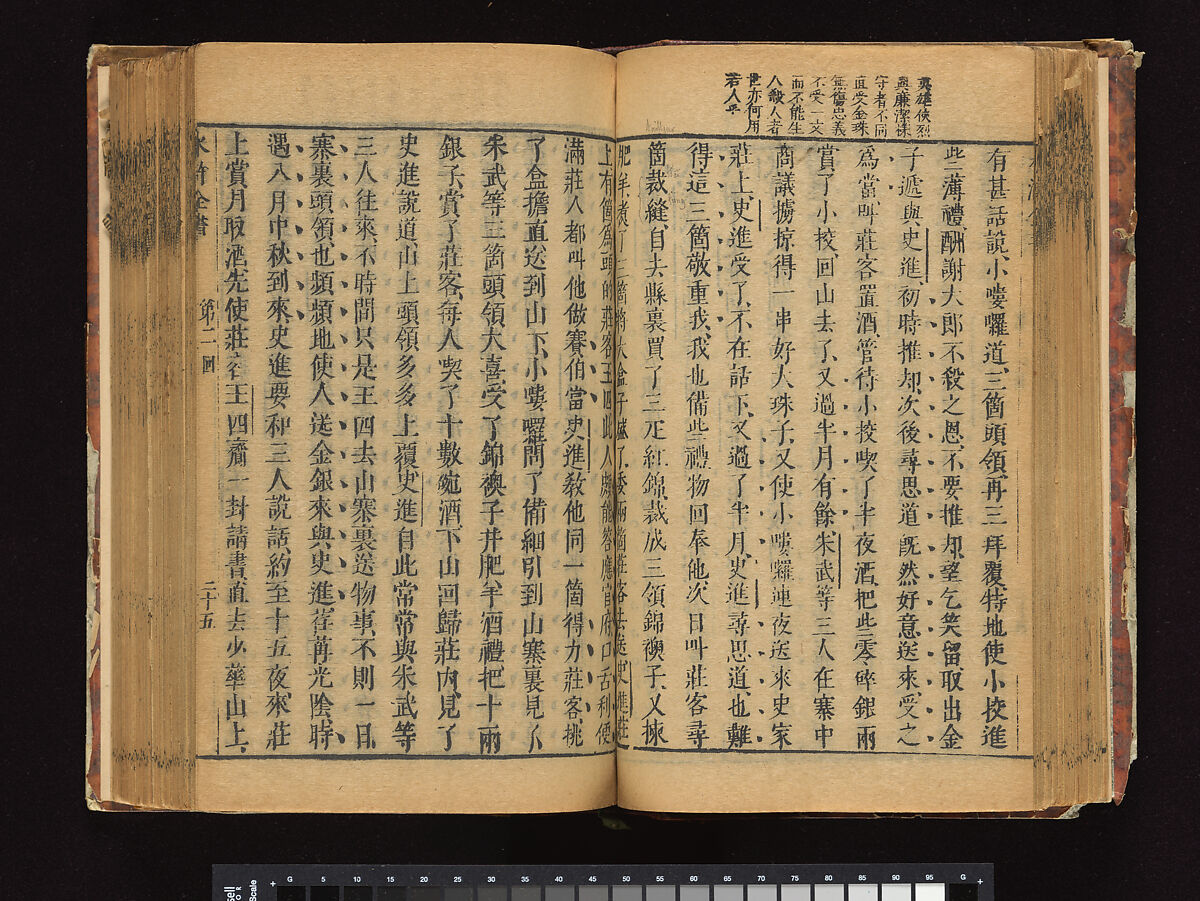 英雄俠烈
與廉潔操
守者不同
直受金珠
無傷忠義
不受一文
而不能生
人殺人者
世亦何用
若人乎
有甚話說、小嘍囉道、三箇頭領再三拜覆、特地使小校進
些薄禮、酬謝大郎不殺之恩、不要推却、望乞笑留、取出金
子、遞與史進、初時推却、次後尋思道、既然好意送來、受之
爲當、叫莊客置酒、管待小校喫了半夜酒、把些零碎銀兩
賞了小校、回山去了、又過半月有餘、朱武等三人在寨中
商議擄掠得一串好大珠子、又使小嘍囉連夜送來史家
莊上、史進受了、不在話下、又過了半月、史進尋思道、也難
得這三箇敬重我、我也備些禮物回奉他、次日叫莊客尋
箇裁縫、自去縣裏買了三疋紅錦、裁成三領錦襖子、又揀
肥羊煮了三箇、將大盒子盛了、委兩箇莊客去送、史進莊
上有箇爲頭的莊客王四、此人頗能答應官府、口舌利便、
滿莊人都叫他做賽伯當、史進教他同一箇得力莊客、挑
了盒擔、直送到山下、小嘍囉問了備細、引到山寨裏、見了
朱武等三箇頭領大喜、受了錦襖子并肥羊酒禮、把十兩
銀子、賞了莊客、每人喫了十數碗酒、下山回歸莊內、見了
史進說道、山上頭領多多上覆、史進自此常常與朱武等
三人往來、不時間只是王四去山寨裏送物事、不則一日、
寨裏頭領也頻頻地使人送金銀來與史進、荏苒光陰、時
遇八月中秋到來、史進要和三人說話、約至十五夜來莊
上賞月取酒、先使莊客王四齎一封請書、直去少華山上、
水滸全書
第二回
二十五
20
25
30
35
40
45
50
55
60
65
70
75
80
85
90
95
G
5
10
15
G
Scale